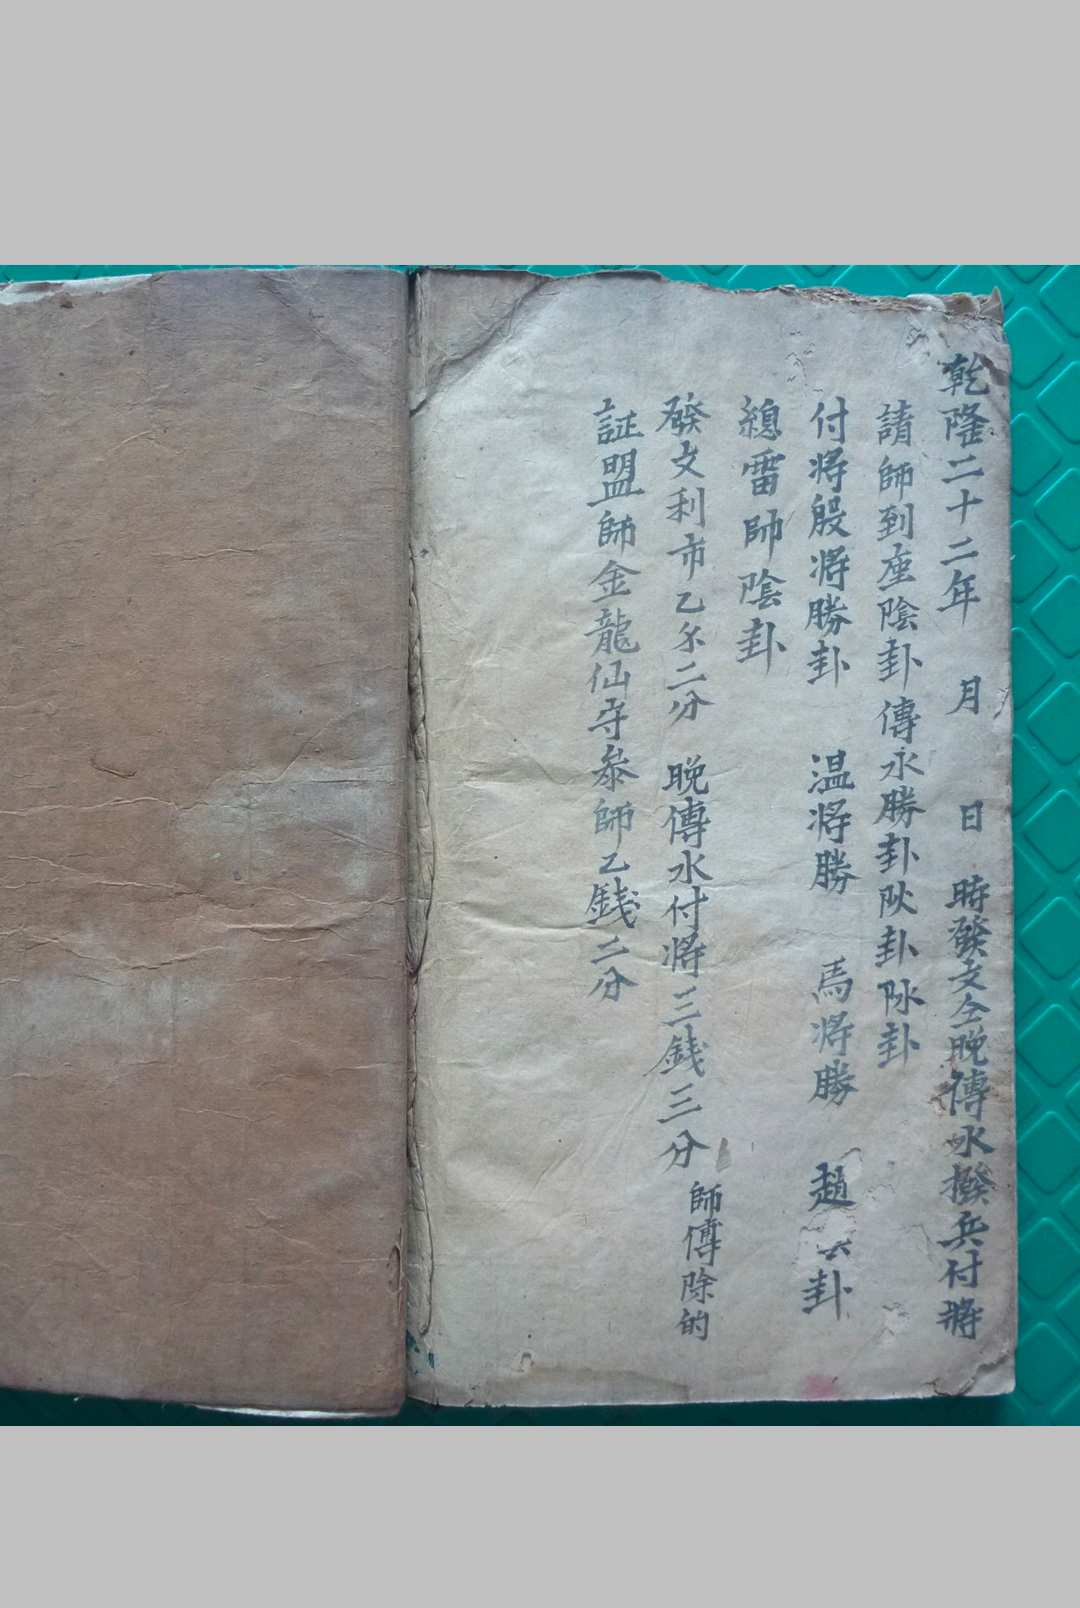 乾隆二十二年 月 日 時發文仝晚傳水撥兵付將
請師到座陰卦傳水勝卦阦卦阥卦
付將殷將勝卦 温將勝 馬將勝 趙 卦
總雷帥陰卦
發文利市乙尒二分 晚傳水付將三錢三分 師傅除的
証盟師金龍仙寺叅師乙錢二分